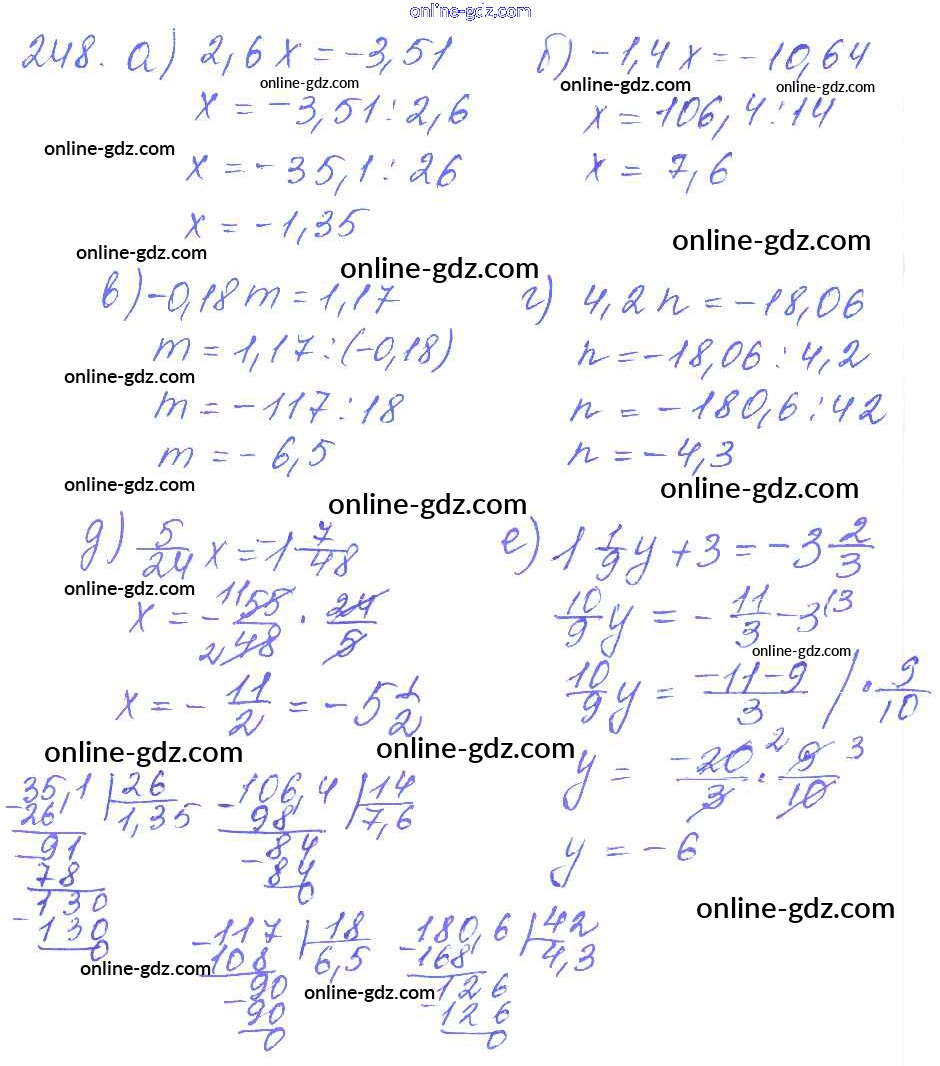 online-gdz.com
248. а) 2,6x = -3,51
б) -1,4x = -10,64
online-gdz.com
online-gdz.com
online-gdz.com
x = -3,51 : 2,6
x = 106,4 : 14
online-gdz.com
x = -35,1 : 26
x = 7,6
x = -1,35
online-gdz.com
online-gdz.com
online-gdz.com
в) -0,18m = 1,17
г) 4,2n = -18,06
m = 1,17 : (-0,18)
n = -18,06 : 4,2
online-gdz.com
m = -117 : 18
n = -180,6 : 42
m = -6,5
n = -4,3
online-gdz.com
online-gdz.com
online-gdz.com
д) 5/24 x = -1 7/48
е) 1 1/9 y + 3 = -3 2/3
online-gdz.com
x = - 11 55/2 48 · 24/5
10/9 y = - 11/3 - 3 (3
online-gdz.com
x = - 11/2 = -5 1/2
10/9 y = -11-9/3 / · 9/10
online-gdz.com
online-gdz.com
y = -20 2/3 · 9 3/10
y = -6
-35,1 | 26
26 1,35
-91
78
-130
130
0
-106,4 | 14
98 7,6
84
-84
0
online-gdz.com
-117 | 18
108 6,5
-90
90
0
-180,6 | 42
168 4,3
-126
126
0
online-gdz.com
online-gdz.com